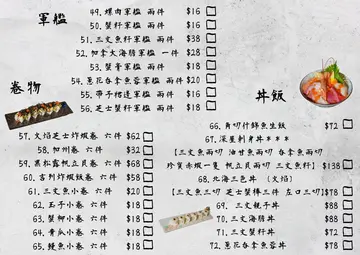 軍艦
49. 螺肉軍艦 兩件 $16
50. 蟹籽軍艦 兩件 $16
51. 三文魚籽軍艦 兩件 $38
52. 加拿大海膽軍艦 一件 $28
53. 蟹膏軍艦 兩件 $18
54. 蔥花吞拿魚蓉軍艦 兩件 $20
55. 帶子裙邊軍艦 兩件 $16
56. 芝士蟹籽軍艦 兩件 $18
卷物
57. 火焰芝士炸蝦卷 六件 $62
58. 加州卷 六件 $32
59. 黑松露帆立貝卷 六件 $68
60. 吉列炸蝦飯卷 六件 $58
61. 三文魚小卷 六件 $20
62. 玉子小卷 六件 $18
63. 蟹柳小卷 六件 $18
64. 青瓜小卷 六件 $18
65. 鰻魚小卷 六件 $18
丼飯
66. 角切什錦魚生飯 $72
67. 深星刺身丼***
【三文魚兩切 油甘魚兩切 吞拿魚兩切
珍貴赤蝦一隻 帆立貝兩切 三文魚籽】 $138
68. 北海三色丼 (火焰)
【三文魚三切 芝士蟹棒三件 左口三切】 $78
69. 三文親子丼 $88
70. 三文海膽丼 $88
71. 三文蟹籽丼 $72
72. 蔥花吞拿魚蓉丼 $78